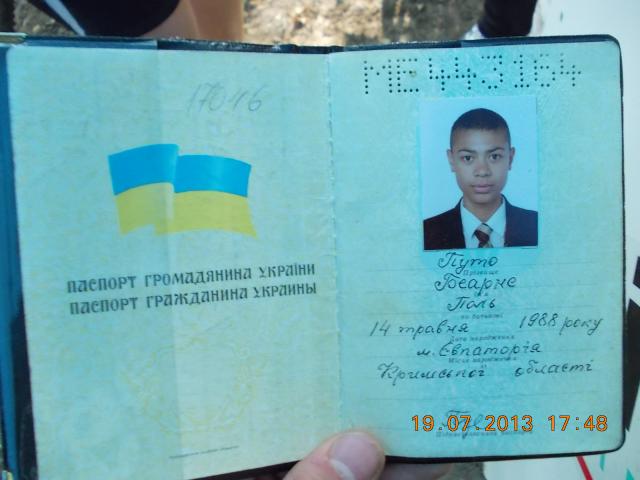 17016
ПАСПОРТ ГРОМАДЯНИНА УКРАЇНИ
ПАСПОРТ ГРАЖДАНИНА УКРАИНЫ
МЕ443164
Путо
Прізвище
Поль
по батькові
14 травня 1988 року
Дата народження
м. Євпаторія
Місце народження
Кримської області
19.07.2013 17:48